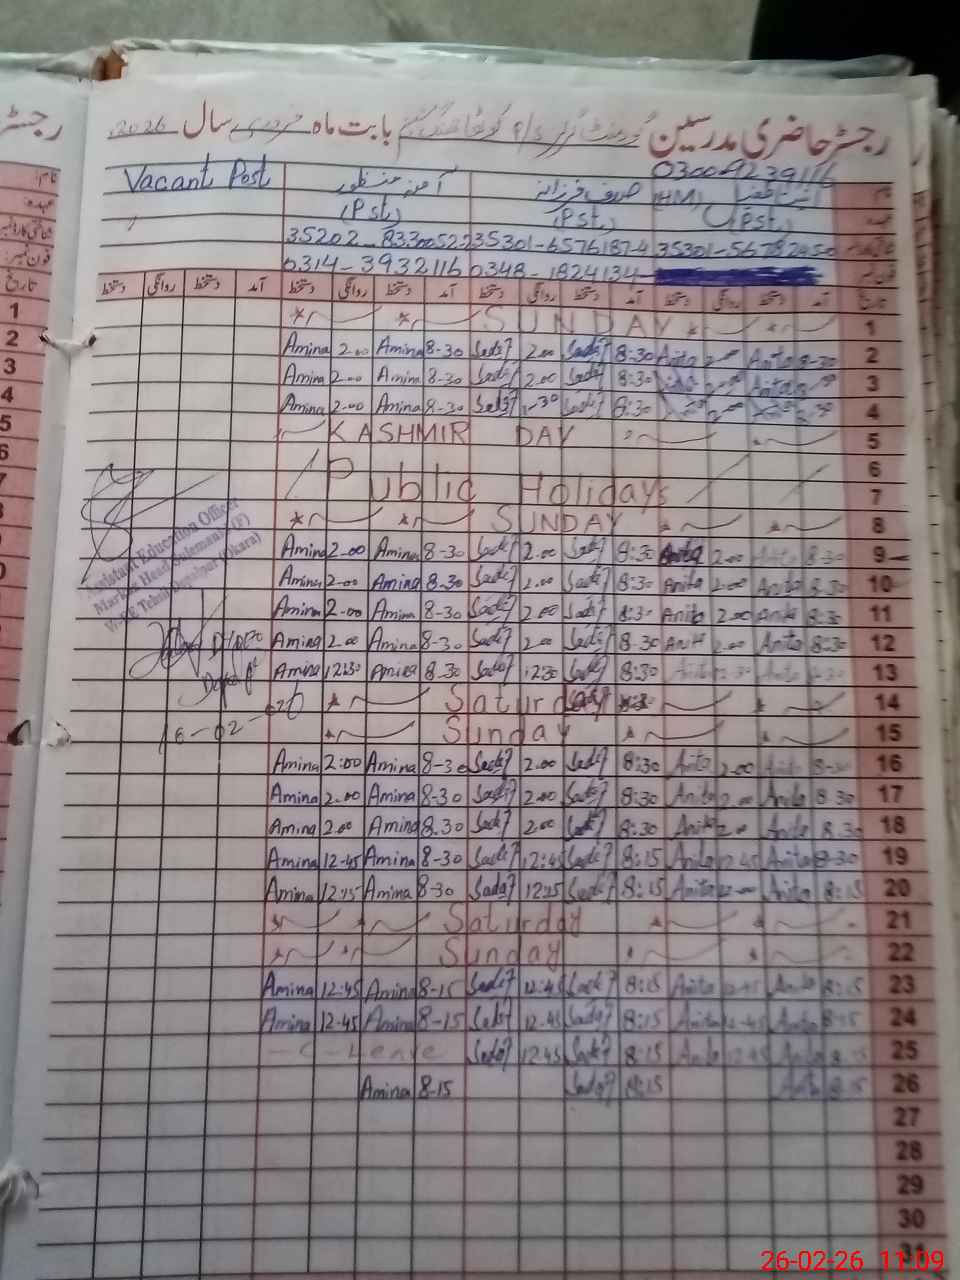 رجسٹر حاضری مدرسین گورنمنٹ گرلز بابت ماہ فروری سال 2026
03009239116
Vacant Post آمنہ منظور صدف فرزانہ (HM)
(Pst) (Pst) (Pst)
35301-6576187-4 35301-5678245-0
0314-3932116 0348-1824134
دستخط روانگی دستخط آمد دستخط روانگی دستخط آمد دستخط روانگی دستخط آمد دستخط روانگی دستخط آمد تاریخ
SUNDAY 1
Amina 2.00 Amina 8-30 Sadaf 2.00 Sadaf 8:30 Anita 2.00 Anita 8-30 2
Amina 2.00 Amina 8-30 Sadaf 2.00 Sadaf 8:30 Anita 3
Amina 2.00 Amina 8-30 Sadaf Sadaf 8:30 4
KASHMIR DAY 5
6
Public Holidays 7
SUNDAY 8
Amina 2.00 Amina 8-30 Sadaf 2.00 Sadaf 8:30 Anita 2.00 Anita 8-30 9
Amina 2.00 Amina 8.30 Sadaf 2.00 Sadaf 8:30 Anita 2.00 Anita 8.30 10
Amina 2.00 Amina 8-30 Sadaf 2.00 Sadaf 8:30 Anita 2.00 Anita 8:30 11
Amina 2.00 Amina 8-30 Sadaf 2.00 Sadaf 8.30 Anita 2.00 Anita 8:30 12
Amina 12:30 Amina 8.30 Sadaf 12:30 Sadaf 8:30 Anita 13
Saturday 14
Sunday 15
Amina 2:00 Amina 8-30 Sadaf 2.00 Sadaf 8:30 Anita 2.00 Anita 8-30 16
Amina 2.00 Amina 8-30 Sadaf 2.00 Sadaf 8:30 Anita 2.00 Anita 8.30 17
Amina 2.00 Amina 8.30 Sadaf 2.00 Sadaf 8:30 Anita 2.00 Anita 8.30 18
Amina 12-45 Amina 8-30 Sadaf 12:45 Sadaf 8:15 Anita 12.45 Anita 8-30 19
Amina 12:15 Amina 8-30 Sadaf 12:15 Sadaf 8:15 Anita Anita 8:15 20
Saturday 21
Sunday 22
Amina 12:45 Amina 8-15 Sadaf 12:45 Sadaf 8:15 Anita 12.45 Anita 8:15 23
Amina 12.45 Amina 8-15 Sadaf 12.45 Sadaf 8:15 Anita 12.45 Anita 8:15 24
-C-Leave Sadaf 12.45 Sadaf 8:15 Anita 12.45 Anita 25
Amina 8-15 Sadaf 8:15 Anita 8.15 26
27
28
29
30
31
Assistant Education Officer
Markaz Head Sulemanki (F)
W-EE Tehsil Depalpur (Okara)
16-02-026
26-02-26 11:09